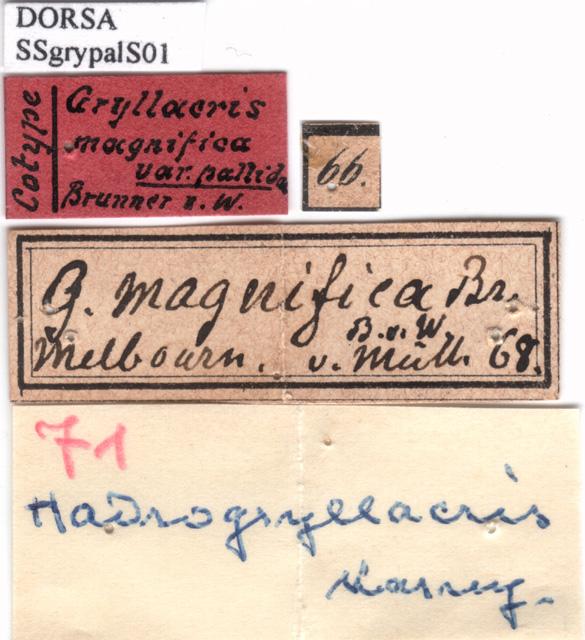 DORSA
SSgrypalS01
Cotype
Gryllacris
magnifica
var. pallida
Brunner v. W.
66.
G. magnifica Br.
B. v. W.
Melbourn. v. Müll. 68.
71
Hadrogryllacris
Karny.